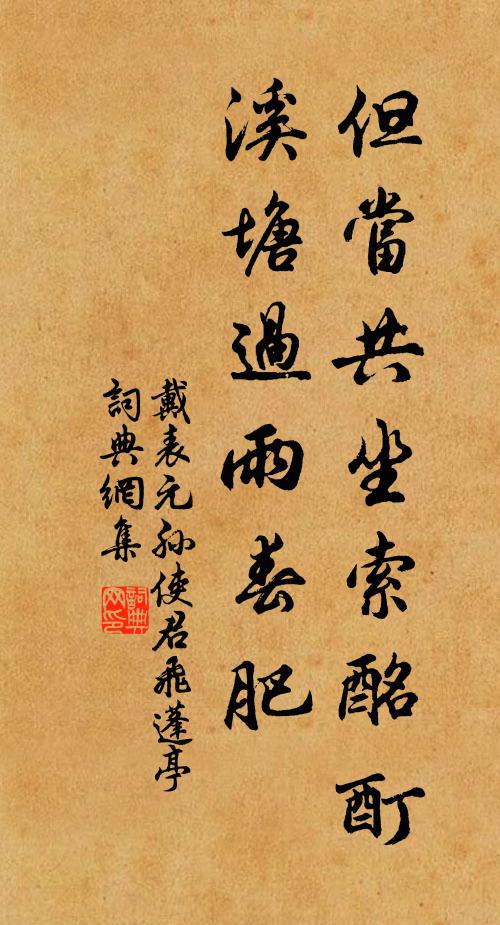 但當共坐索酩酊
溪塘過雨春肥
戴表元孫使君飛蓬亭
詞典網集
詞典网印